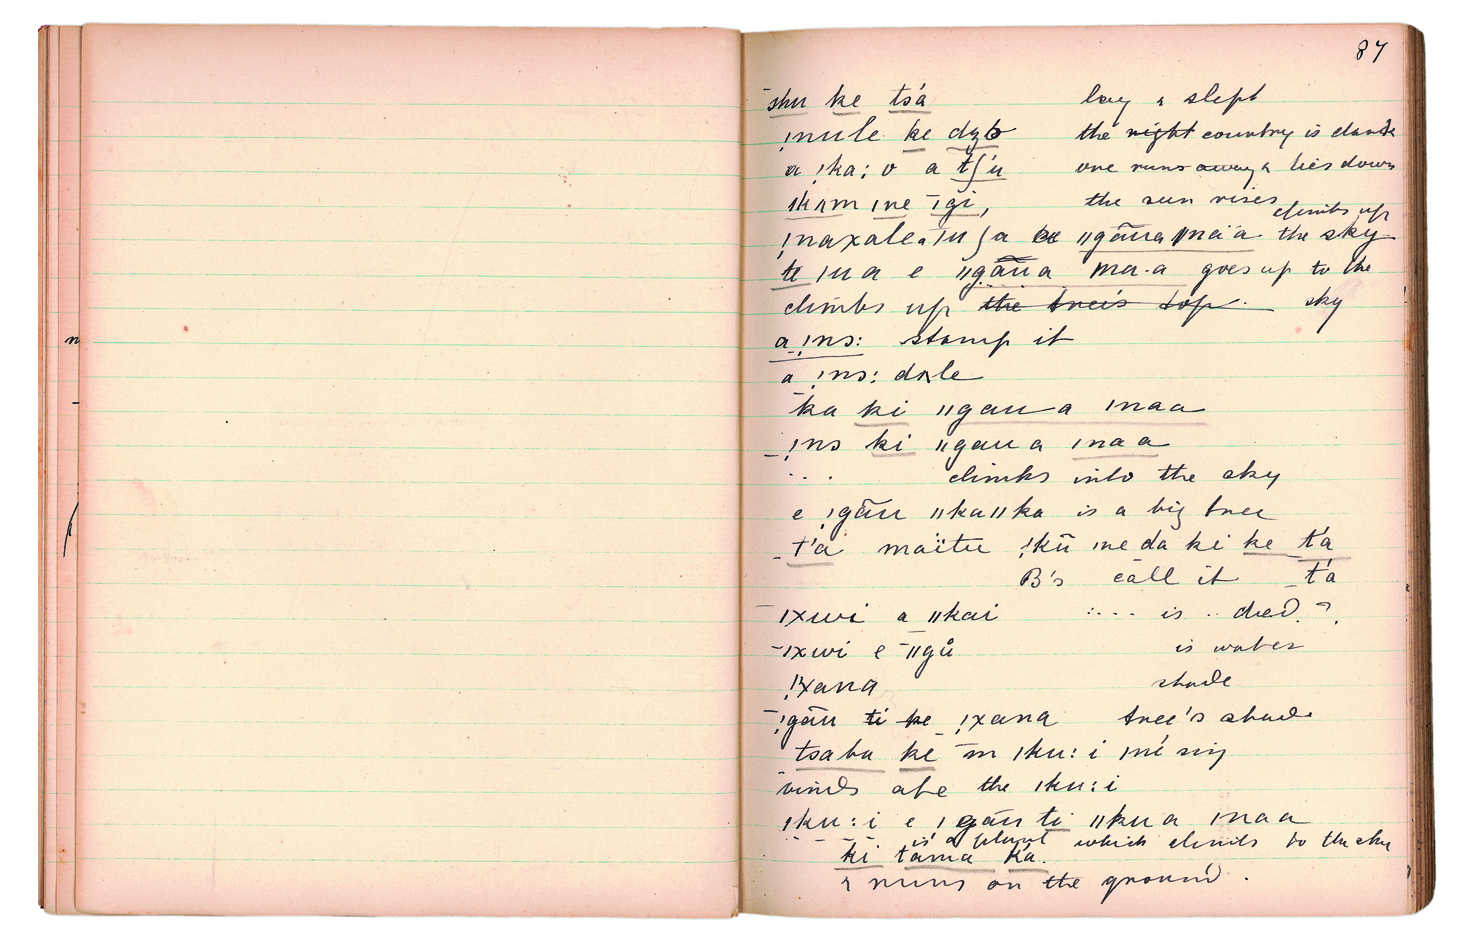 87
shu ke tsá lay & slept
!nule ke dzɔ the night country is dark
a !ka: o a tʃ'u one runs away & lies down
ıkʌm ıne ı̄gi, the sun rises
climbs up
!naxale a ıu ʃa ǁgāua ǀnä'a the sky
te ıu a e ǁgāū a ma·a goes up to the
climbs up the tree's top. sky
a !ns: stamp it
a !ns: dʌle
ka ki ǁgau a ınaa
!ns ki ǁgau a ınaa
climbs into the sky
e !gāu ǁkaǁka is a big tree
t'a maïtu !kū ıne da ki ke t'a
B's call it t'a
ıxwi a ǁkai is died ?
ıxwi e ǁgů is water
!xana shade
!gāu ti ke !xana tree's shade
tsaba ke m ıku: i ıńe siŋ
birds ate the ıku: i
ıku: i e !gāu ti ǁku a ınaa
is a plant which climbs to the sky
ki tama ka.
& runs on the ground.